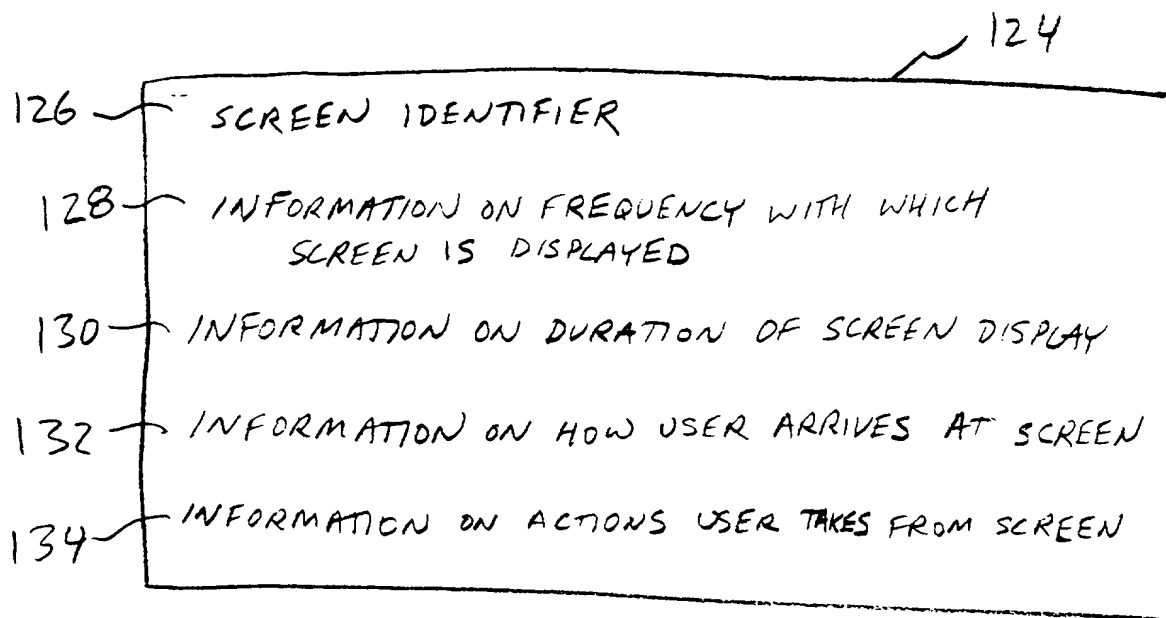 124
126 SCREEN IDENTIFIER
128 INFORMATION ON FREQUENCY WITH WHICH
SCREEN IS DISPLAYED
130 INFORMATION ON DURATION OF SCREEN DISPLAY
132 INFORMATION ON HOW USER ARRIVES AT SCREEN
134 INFORMATION ON ACTIONS USER TAKES FROM SCREEN